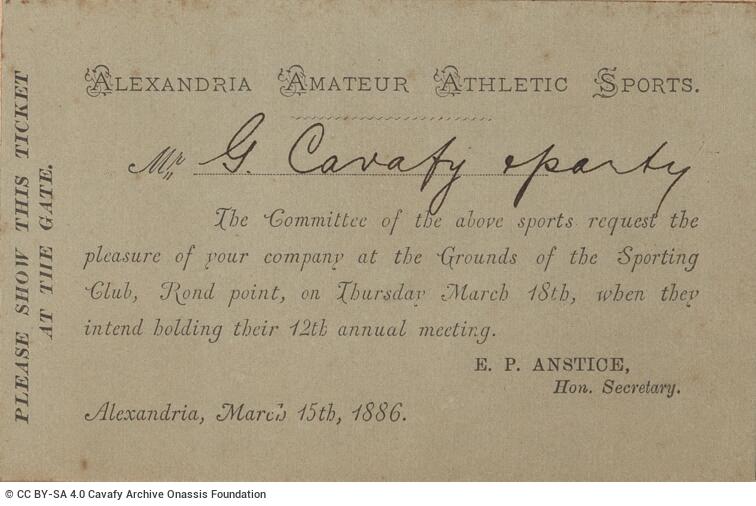 PLEASE SHOW THIS TICKET
AT THE GATE.
ALEXANDRIA AMATEUR ATHLETIC SPORTS.
Mr G. Cavafy & party
The Committee of the above sports request the
pleasure of your company at the Grounds of the Sporting
Club, Rond point, on Thursday March 18th, when they
intend holding their 12th annual meeting.
E. P. ANSTICE,
Hon. Secretary.
Alexandria, March 15th, 1886.
© CC BY-SA 4.0 Cavafy Archive Onassis Foundation